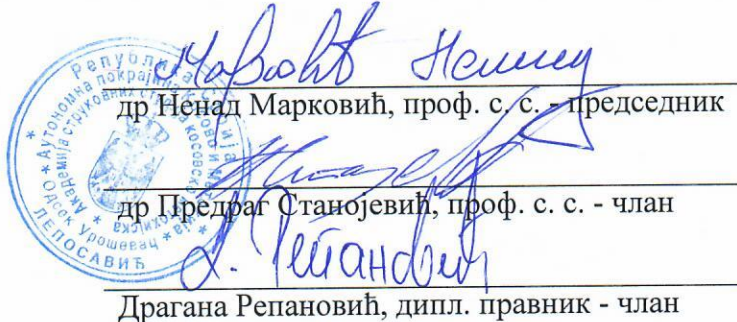 Марковић Ненад
др Ненад Марковић, проф. с. с. - председник
др Предраг Станојевић, проф. с. с. - члан
Д. Репановић
Драгана Репановић, дипл. правник - члан
Република Србија
Аутономна покрајина Косово и Метохија
Академија струковних студија косовско метохијска
Одсек Урошевац
ЛЕПОСАВИЋ